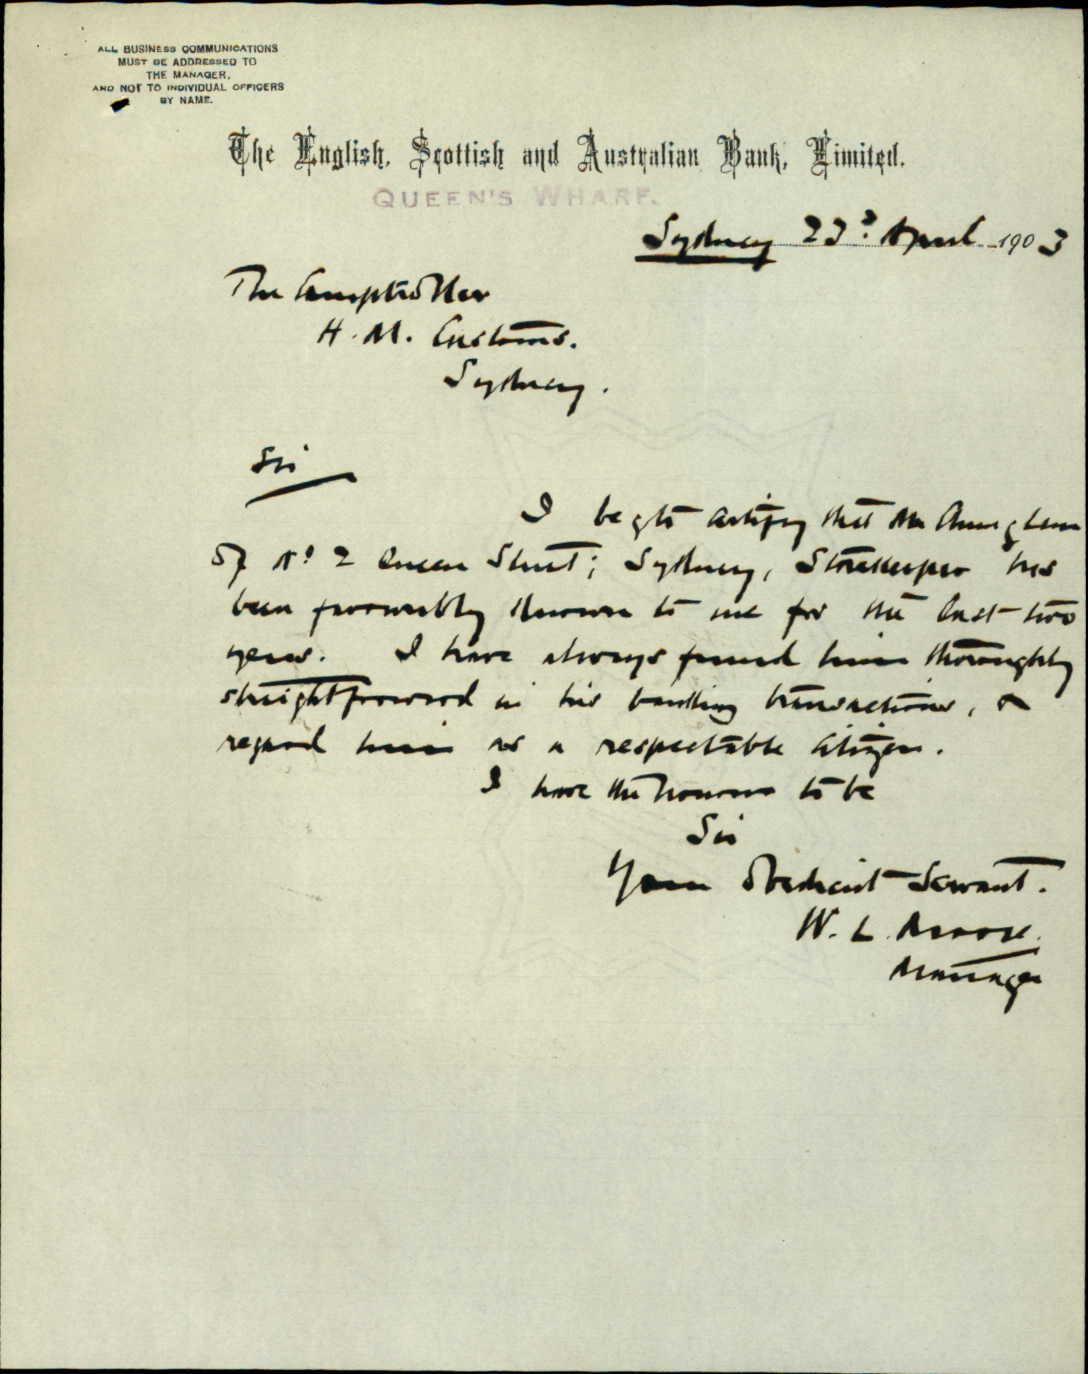 ALL BUSINESS COMMUNICATIONS
MUST BE ADDRESSED TO
THE MANAGER,
AND NOT TO INDIVIDUAL OFFICERS
BY NAME.
The English, Scottish and Australian Bank, Limited.
QUEEN'S WHARF.
Sydney 23d April 1903
The Comptroller
H. M. Customs.
Sydney.
Sir
I beg to certify that Mr
of No 2 Queen Street, Sydney, Storekeeper has
been favourably known to me for the last two
years. I have always found him thoroughly
straightforward in his banking transactions, &
regard him as a respectable citizen.
I have the honour to be
Sir
Your Obedient Servant.
W. L.
Manager